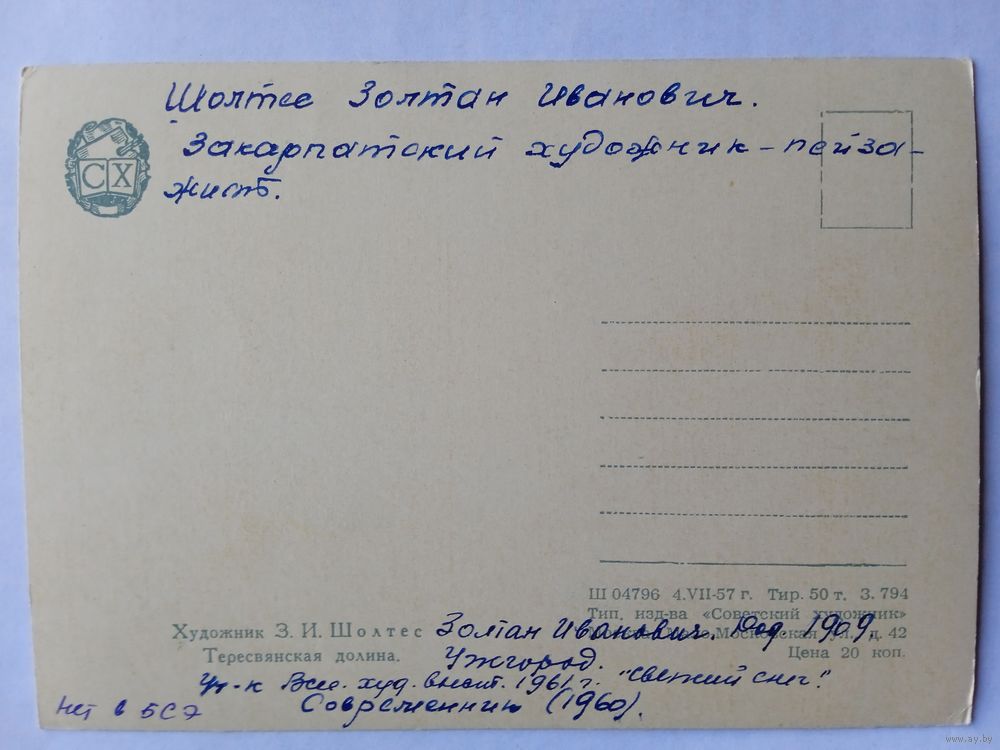 Шолтес Золтан Иванович.
Закарпатский художник-пейза-
жист.
СХ
Ш 04796 4.VII-57 г. Тир. 50 т. З. 794
Тип. изд-ва «Советский художник»
Московская ул., д. 42
Цена 20 коп.
Художник З. И. Шолтес Золтан Иванович. Род. 1909,
Тересвянская долина. Ужгород.
Уч-к Всес. худ. выст. 1961 г. "Свежий снег".
Современник (1960).
Нет в БСЭ
www.ay.by